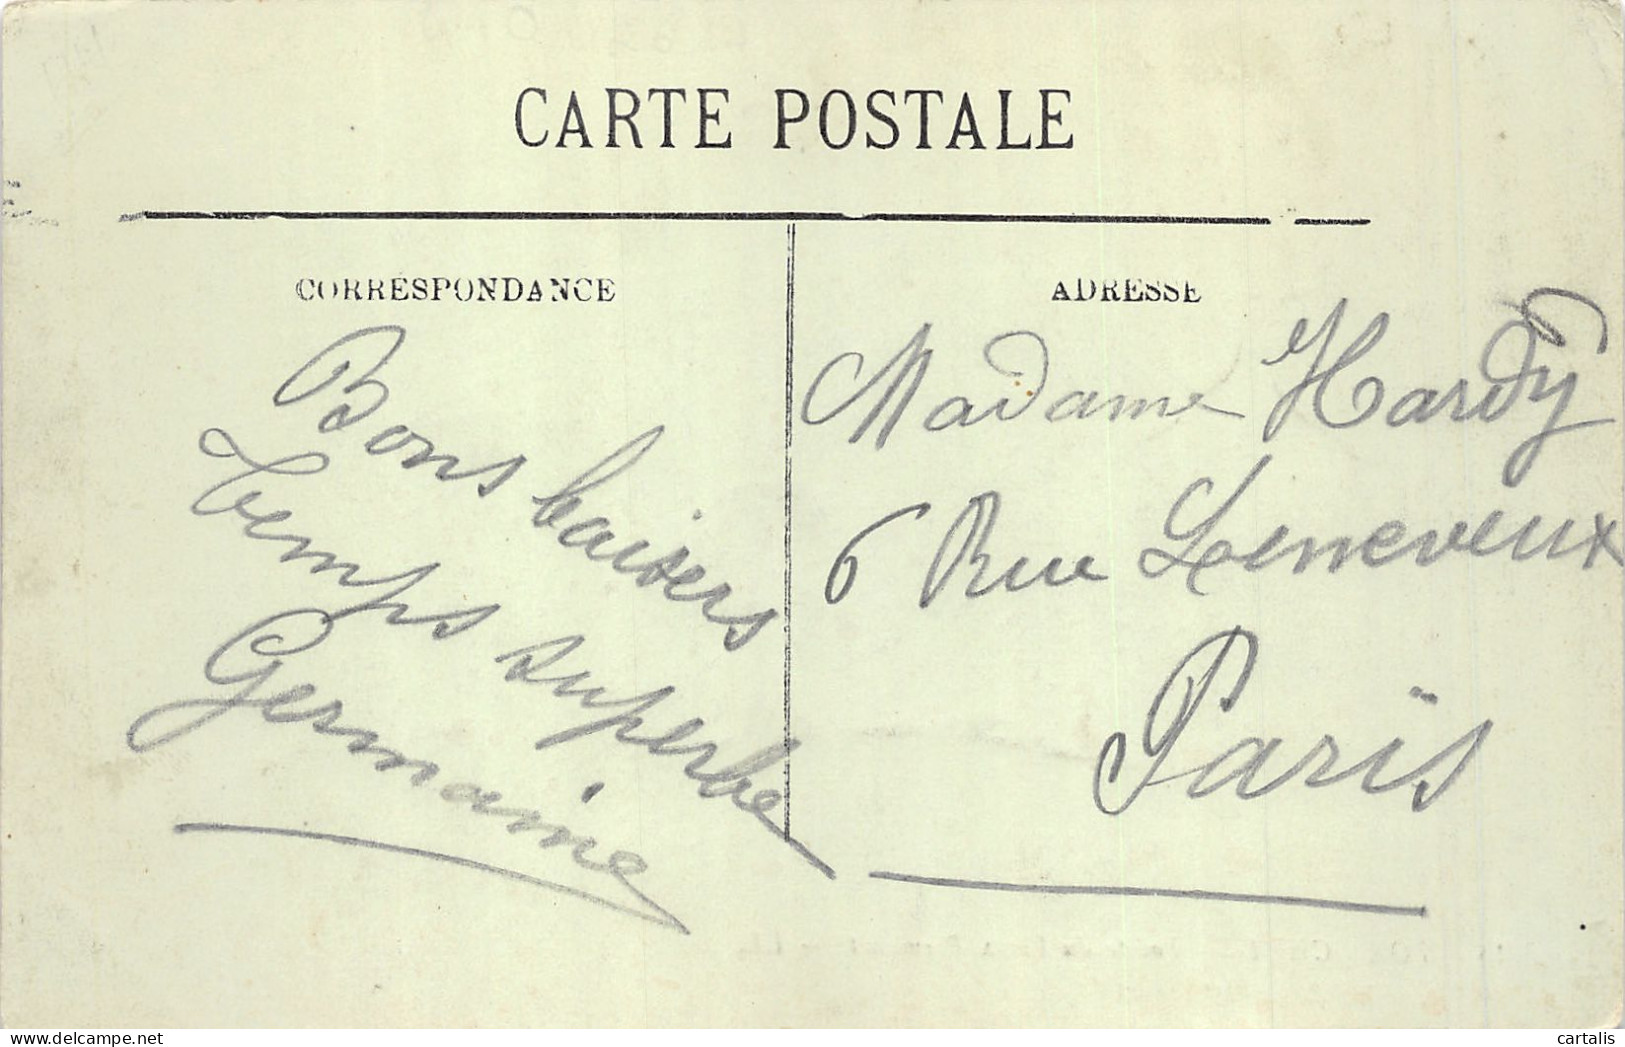 CARTE POSTALE
CORRESPONDANCE
Bons baisers
temps superbe
Germaine
ADRESSE
Madame Hardy
6 Rue Leneveux
Paris
delcampe.net
cartalis